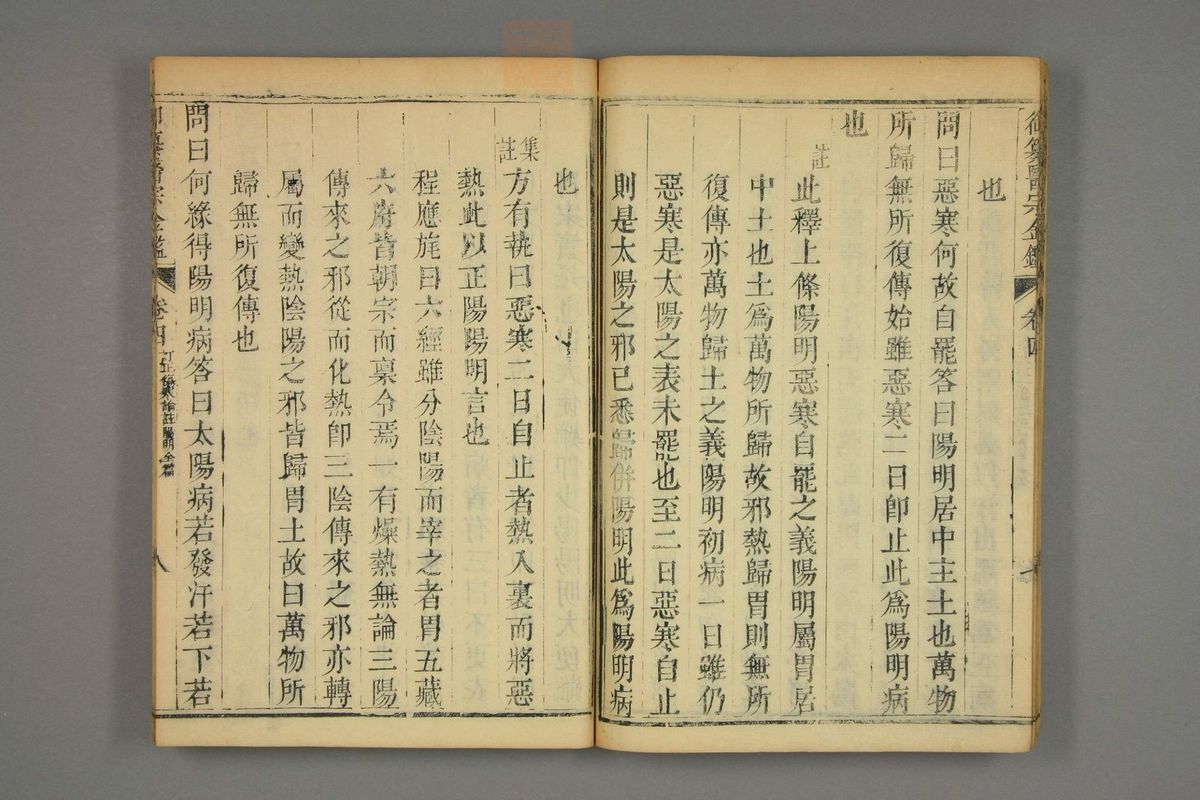 御纂醫宗金鑑
卷四
也
問曰惡寒何故自罷答曰陽明居中主土也萬物
所歸無所復傳始雖惡寒二日即止此爲陽明病
也
註
此釋上條陽明惡寒自罷之義陽明屬胃居
中土也土爲萬物所歸故邪熱歸胃則無所
復傳亦萬物歸土之義陽明初病一日雖仍
惡寒是太陽之表未罷也至二日惡寒自止
則是太陽之邪已悉歸併陽明此爲陽明病
也
集註
方有執曰惡寒二日自止者熱入裏而將惡
熱此以正陽陽明言也
程應旄曰六經雖分陰陽而宰之者胃五藏
六府皆朝宗而禀令焉一有燥熱無論三陽
傳來之邪從而化熱即三陰傳來之邪亦轉
屬而變熱陰陽之邪皆歸胃土故曰萬物所
歸無所復傳也
問曰何緣得陽明病答曰太陽病若發汗若下若
御纂醫宗金鑑
卷四
訂正傷寒論註陽明全篇
八